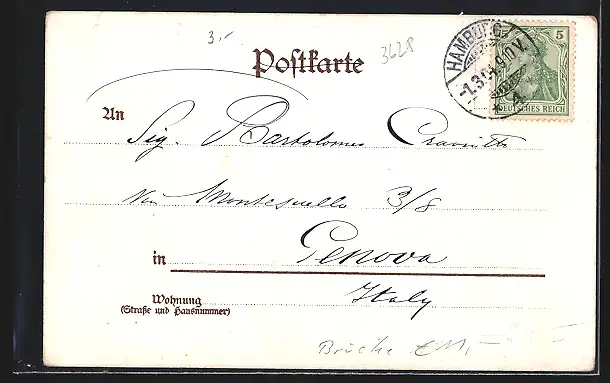 3.-
3628
Postkarte
HAMBURG
-1.3.04.9-10V.
* 1.
5
DEUTSCHES REICH
An
Sig. Bartolomeo
Via 3/8
in Genova
Wohnung
(Straße und Hausnummer)
Italy
Brücke